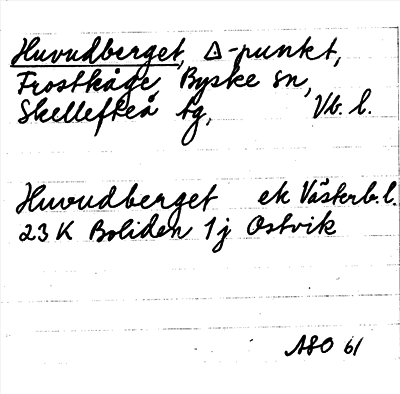 Huvudberget, △-punkt,
Frostkåge, Byske sn,
Skellefteå tg, Vb. l.
Huvudberget ek Västerb. l.
23 K Boliden 1j Ostvik
ASO 61